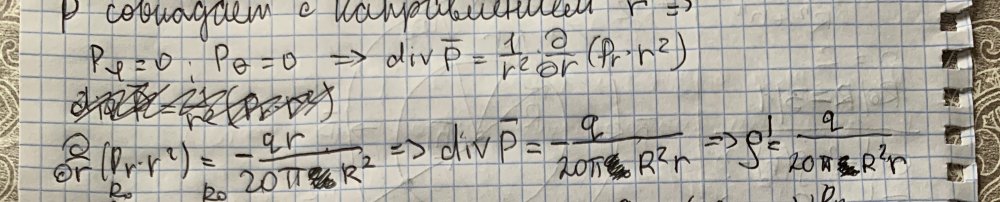 P совпадает с направлением r =>
Pφ=0; Pθ=0 => div P̄ = 1/r² · ∂/∂r (Pr·r²)
∂/∂r (Pr·r²) = -qr/20πR² => div P̄ = -q/20πR²r => ρ' = q/20πR²r
R₀ R₀